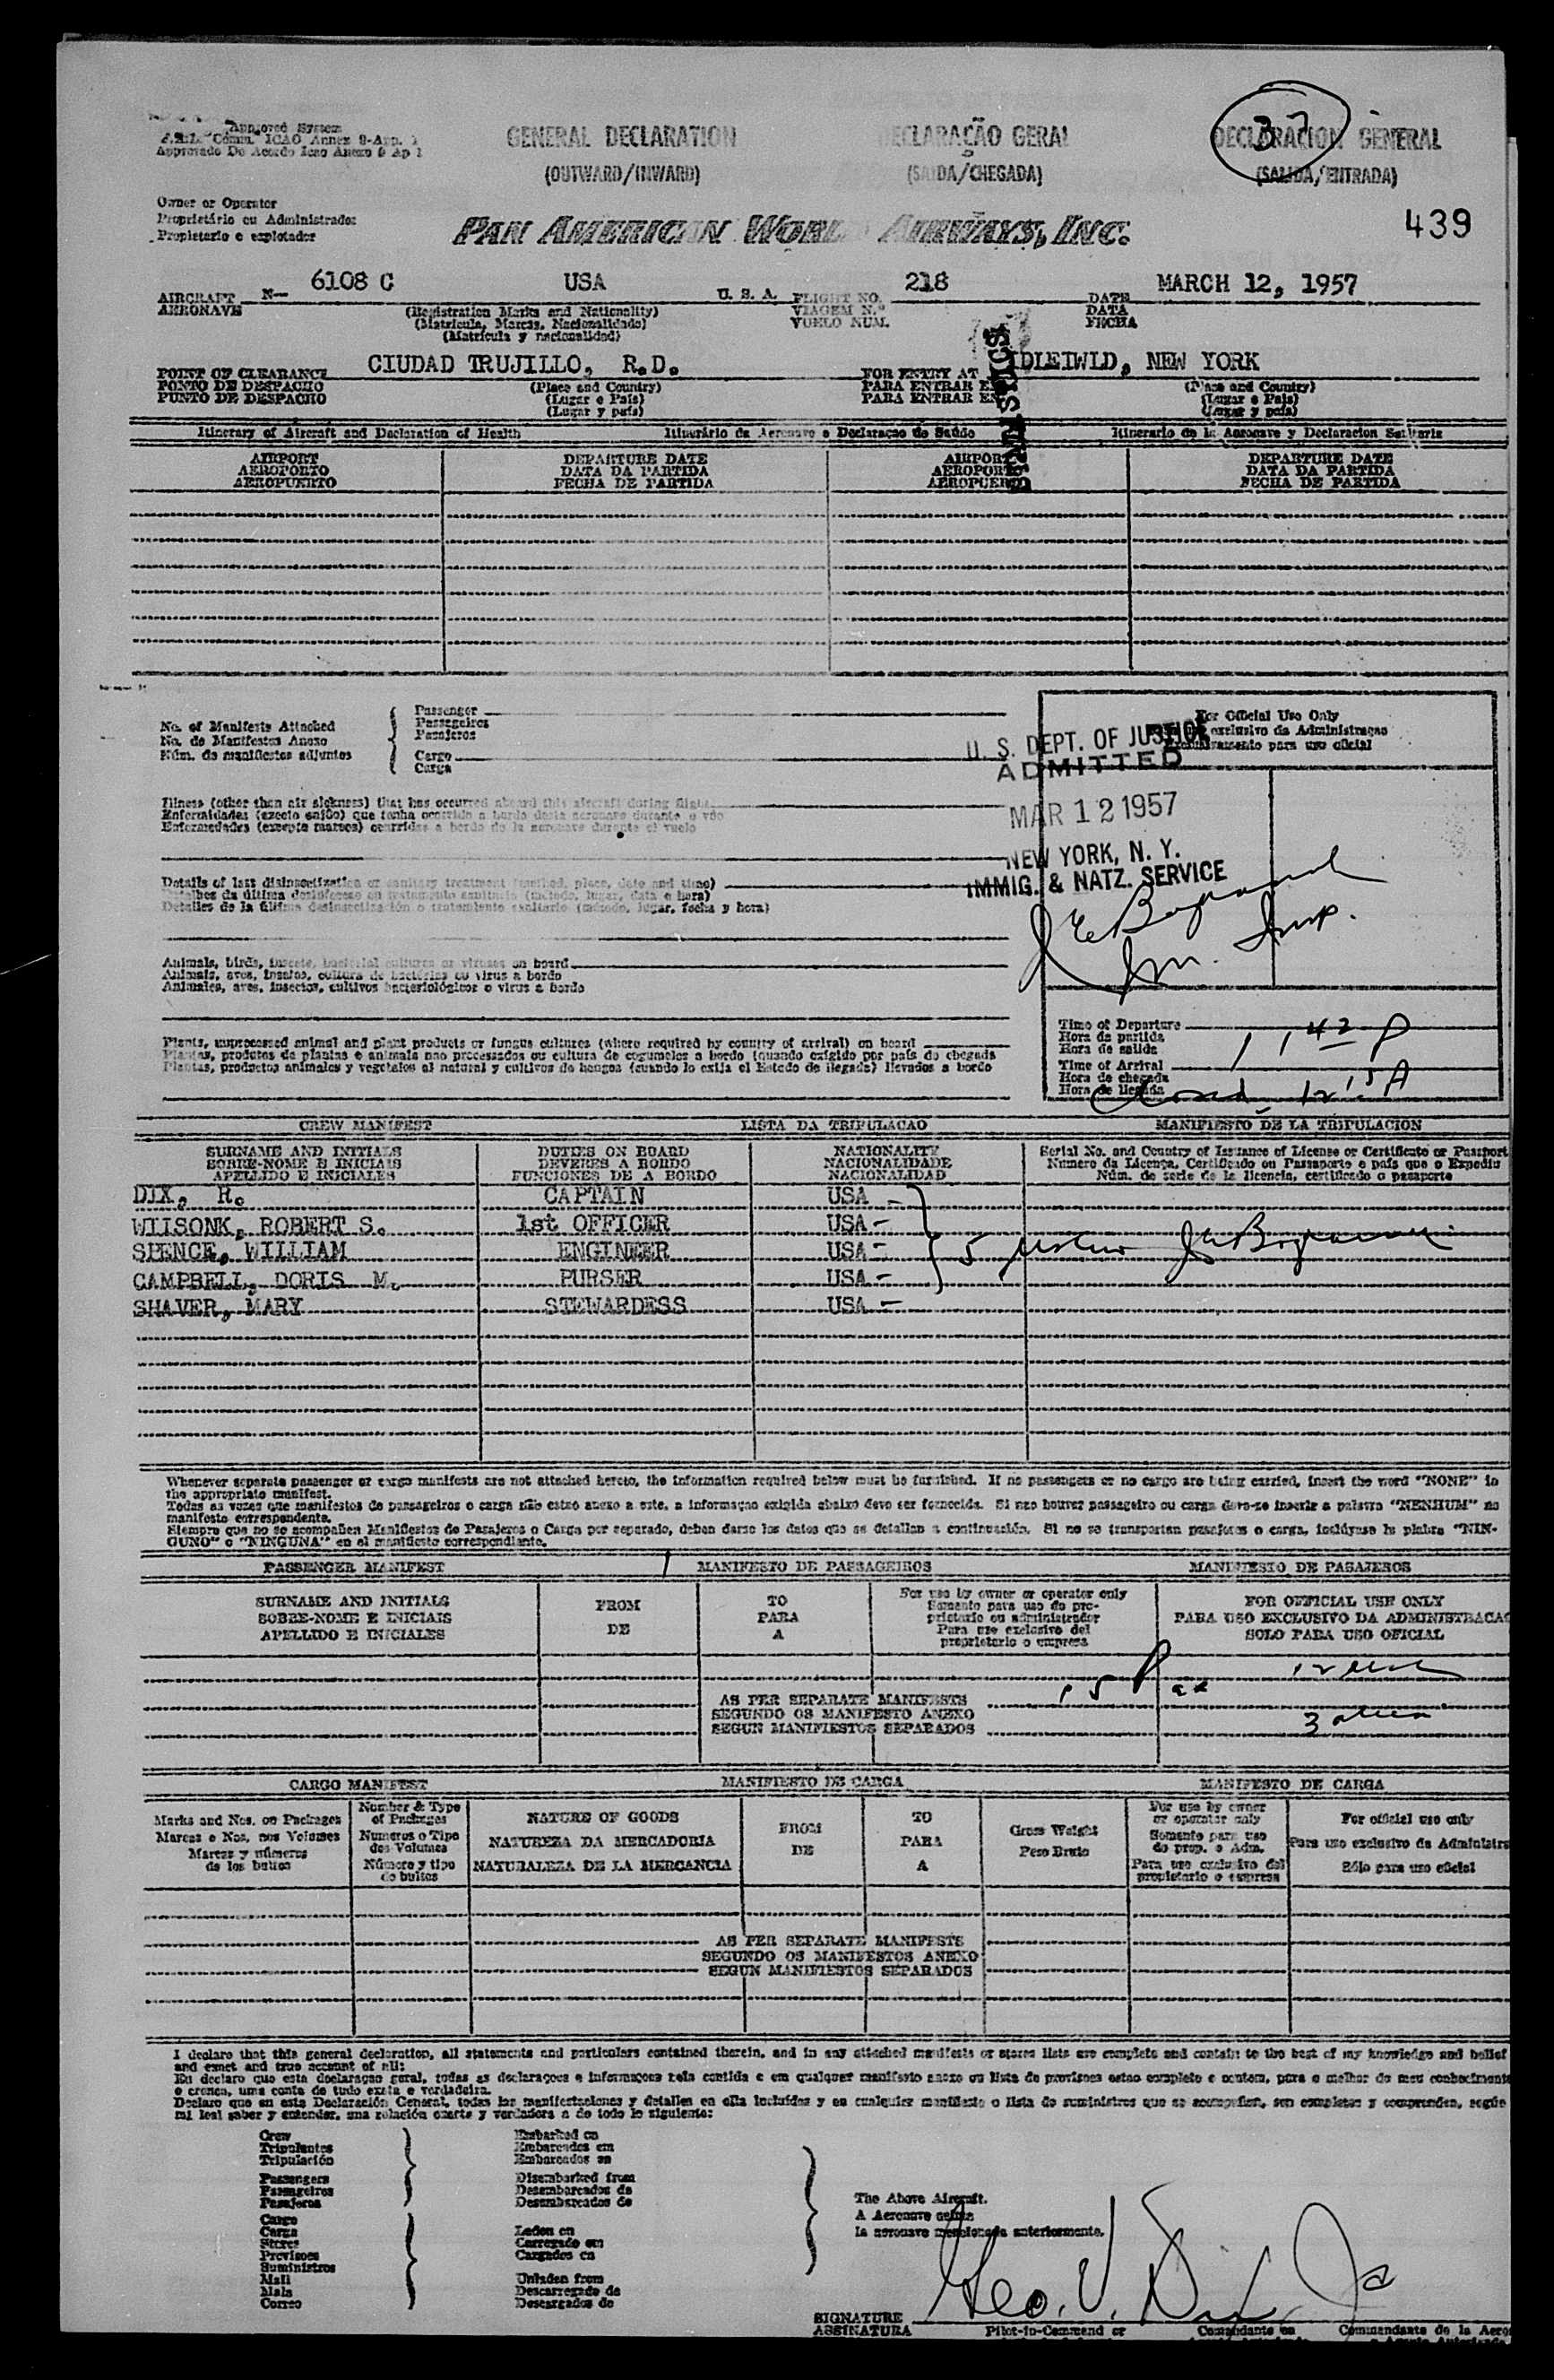 Approved System
Comm. ICAO Annex 9-App. 1
Approvado De Acordo Icao Anexo 9 Ap 1
GENERAL DECLARATION
(OUTWARD/INWARD)
DECLARAÇÃO GERAL
(SAIDA/CHEGADA)
DECLARACION GENERAL
(SALIDA/ENTRADA)
37
Owner or Operator
Proprietário ou Administrador
Propietario e explotador
PAN AMERICAN WORLD AIRWAYS, INC.
439
AIRCRAFT N— 6108 C USA U. S. A. FLIGHT NO. 218 DATE MARCH 12, 1957
AERONAVE (Registration Marks and Nationality) VIAGEM N.º DATA
(Matricula, Marcas, Nacionalidade) VUELO NUM. FECHA
(Matricula y nacionalidad)
POINT OF CLEARANCE CIUDAD TRUJILLO, R.D. FOR ENTRY AT IDLEIWLD, NEW YORK
PONTO DE DESPACHO (Place and Country) PARA ENTRAR EN (Place and Country)
PUNTO DE DESPACHO (Lugar e País) PARA ENTRAR EN (Lugar e País)
(Lugar y país) (Lugar y país)
Itinerary of Aircraft and Declaration of Health Itinerário da Aeronave e Declaraçao de Saúde Itinerario de la Aeronave y Declaracion Sanitaria
AIRPORT DEPARTURE DATE AIRPORT DEPARTURE DATE
AEROPORTO DATA DA PARTIDA AEROPORTO DATA DA PARTIDA
AEROPUERTO FECHA DE PARTIDA AEROPUERTO FECHA DE PARTIDA
No. of Manifests Attached
No. de Manifestos Anexo
Núm. de manifiestos adjuntos
Passenger
Passageiros
Pasajeros
Cargo
Carga
For Official Use Only
exclusivo da Administraçao
Exclusivamente para uso oficial
U. S. DEPT. OF JUSTICE
ADMITTED
MAR 12 1957
NEW YORK, N. Y.
IMMIG. & NATZ. SERVICE
Imm. Insp.
Illness (other than air sickness) that has occurred aboard this aircraft during flight
Enfermidades (exceto enjôo) que tenha ocorrido a bordo desta aeronave durante o vôo
Enfermedades (excepto mareos) ocurridas a bordo de la aeronave durante el vuelo
Details of last disinsectization or sanitary treatment (method, place, date and time)
Detalhes da última desinfeccao ou tratamento sanitario (método, lugar, data e hora)
Detalles de la última desinsectización o tratamiento sanitario (método, lugar, fecha y hora)
Animals, birds, insects, bacterial cultures or viruses on board
Animais, aves, insetos, cultura de bactérias ou virus a bordo
Animales, aves, insectos, cultivos bacteriológicos o virus a bordo
Plants, unprocessed animal and plant products or fungus cultures (where required by country of arrival) on board
Plantas, produtos de plantas e animais nao processados ou cultura de cogumelos a bordo (quando exigido por país de chegada
Plantas, productos animales y vegetales al natural y cultivos de hongos (cuando lo exija el Estado de llegada) llevados a bordo
Time of Departure
Hora de partida
Hora de salida
1 1 42 P
Time of Arrival
Hora de chegada
Hora de llegada
Closed 12 15 A
CREW MANIFEST LISTA DA TRIPULACAO MANIFIESTO DE LA TRIPULACION
SURNAME AND INITIALS DUTIES ON BOARD NATIONALITY Serial No. and Country of Issuance of License or Certificate or Passport
SOBRE-NOME E INICIAIS DEVERES A BORDO NACIONALIDADE Numero da Licença, Certificado ou Passaporte e país que o Expediu
APELLIDO E INICIALES FUNCIONES DE A BORDO NACIONALIDAD Núm. de serie de la licencia, certificado o pasaporte
DIX, R. CAPTAIN USA -
WIISONK, ROBERT S. 1st OFFICER USA -
SPENCE, WILLIAM ENGINEER USA - 5
CAMPBELL, DORIS M. PURSER USA -
SHAVER, MARY STEWARDESS USA -
Whenever separate passenger or cargo manifests are not attached hereto, the information required below must be furnished. If no passengers or no cargo are being carried, insert the word "NONE" in
the appropriate manifest.
Todas as vezes que manifestos de passageiros o carga não estao anexo a este, a informaçao exigida abaixo deve ser fornecida. Si nao houver passageiro ou carga deve-se inserir a palavra "NENHUM" no
manifesto correspondente.
Siempre que no se acompañen Manifiestos de Pasajeros o Carga por separado, deben darse los datos que se detallan a continuación. Si no se transportan pasajeros o carga, inclúyase la plabra "NIN-
GUNO" o "NINGUNA" en el manifiesto correspondiente.
PASSENGER MANIFEST MANIFESTO DE PASSAGEIROS MANIFIESTO DE PASAJEROS
SURNAME AND INITIALS FROM TO For use by owner or operator only FOR OFFICIAL USE ONLY
SOBRE-NOME E INICIAIS DE PARA Somente para uso do pro- PARA USO EXCLUSIVO DA ADMINISTRACAO
APELLIDO E INICIALES A prietario ou administrador SOLO PARA USO OFICIAL
Para uso exclusivo del
propietario o empresa
15 Pax
AS PER SEPARATE MANIFESTS
SEGUNDO OS MANIFESTO ANEXO
SEGUN MANIFIESTOS SEPARADOS
3 alien
CARGO MANIFEST MANIFIESTO DE CARGA MANIFESTO DE CARGA
Marks and Nos. on Packages
Marcas e Nos. nos Volumes
Marcas y números
de los bultos
Number & Type
of Packages
Numeros o Tipo
dos Volumes
Número y tipo
de bultos
NATURE OF GOODS
NATUREZA DA MERCADORIA
NATURALEZA DE LA MERCANCIA
FROM
DE
TO
PARA
A
Gross Weight
Peso Bruto
For use by owner
or operator only
Somente para uso
do prop. o Adm.
Para uso exclusivo del
propietario o empresa
For official use only
Para uso exclusivo da Administra
Sólo para uso oficial
AS PER SEPARATE MANIFESTS
SEGUNDO OS MANIFESTOS ANEXO
SEGUN MANIFIESTOS SEPARADOS
I declare that this general declaration, all statements and particulars contained therein, and in any attached manifests or stores lists are complete and contain to the best of my knowledge and belief
and exact and true account of all:
Eu declaro que esta declaraçao geral, todas as declaraçoes e informaçoes nela contida e em qualquer manifesto anexo ou lista de provisoes estao completo e contem, para o melhor do meu conhecimento
e crenca, uma conta de tudo exata e verdadeira.
Declaro que en esta Declaración General, todas las manifestaciones y detalles en ella incluídas y en cualquier manifiesto o lista de suministros que se acompañen, son completas y comprenden, según
mi leal saber y entender, una relación exacta y verdadera a de todo lo siguiente:
Crew
Tripulantes
Tripulación
Passengers
Passageiros
Pasajeros
Cargo
Carga
Stores
Provisoes
Suministros
Mail
Mala
Correo
Embarked on
Embarcados em
Embarcados en
Disembarked from
Desembarcados de
Desembarcados de
Laden on
Carregado em
Cargados en
Unladen from
Descarregado de
Descargados de
The Above Aircraft.
A Aeronave acima
la aeronave mencionada anteriormente.
Geo. V. Dix, Jr
SIGNATURE
ASSINATURA
Pilot-in-Command or Comandante ou Commandante de la Aero